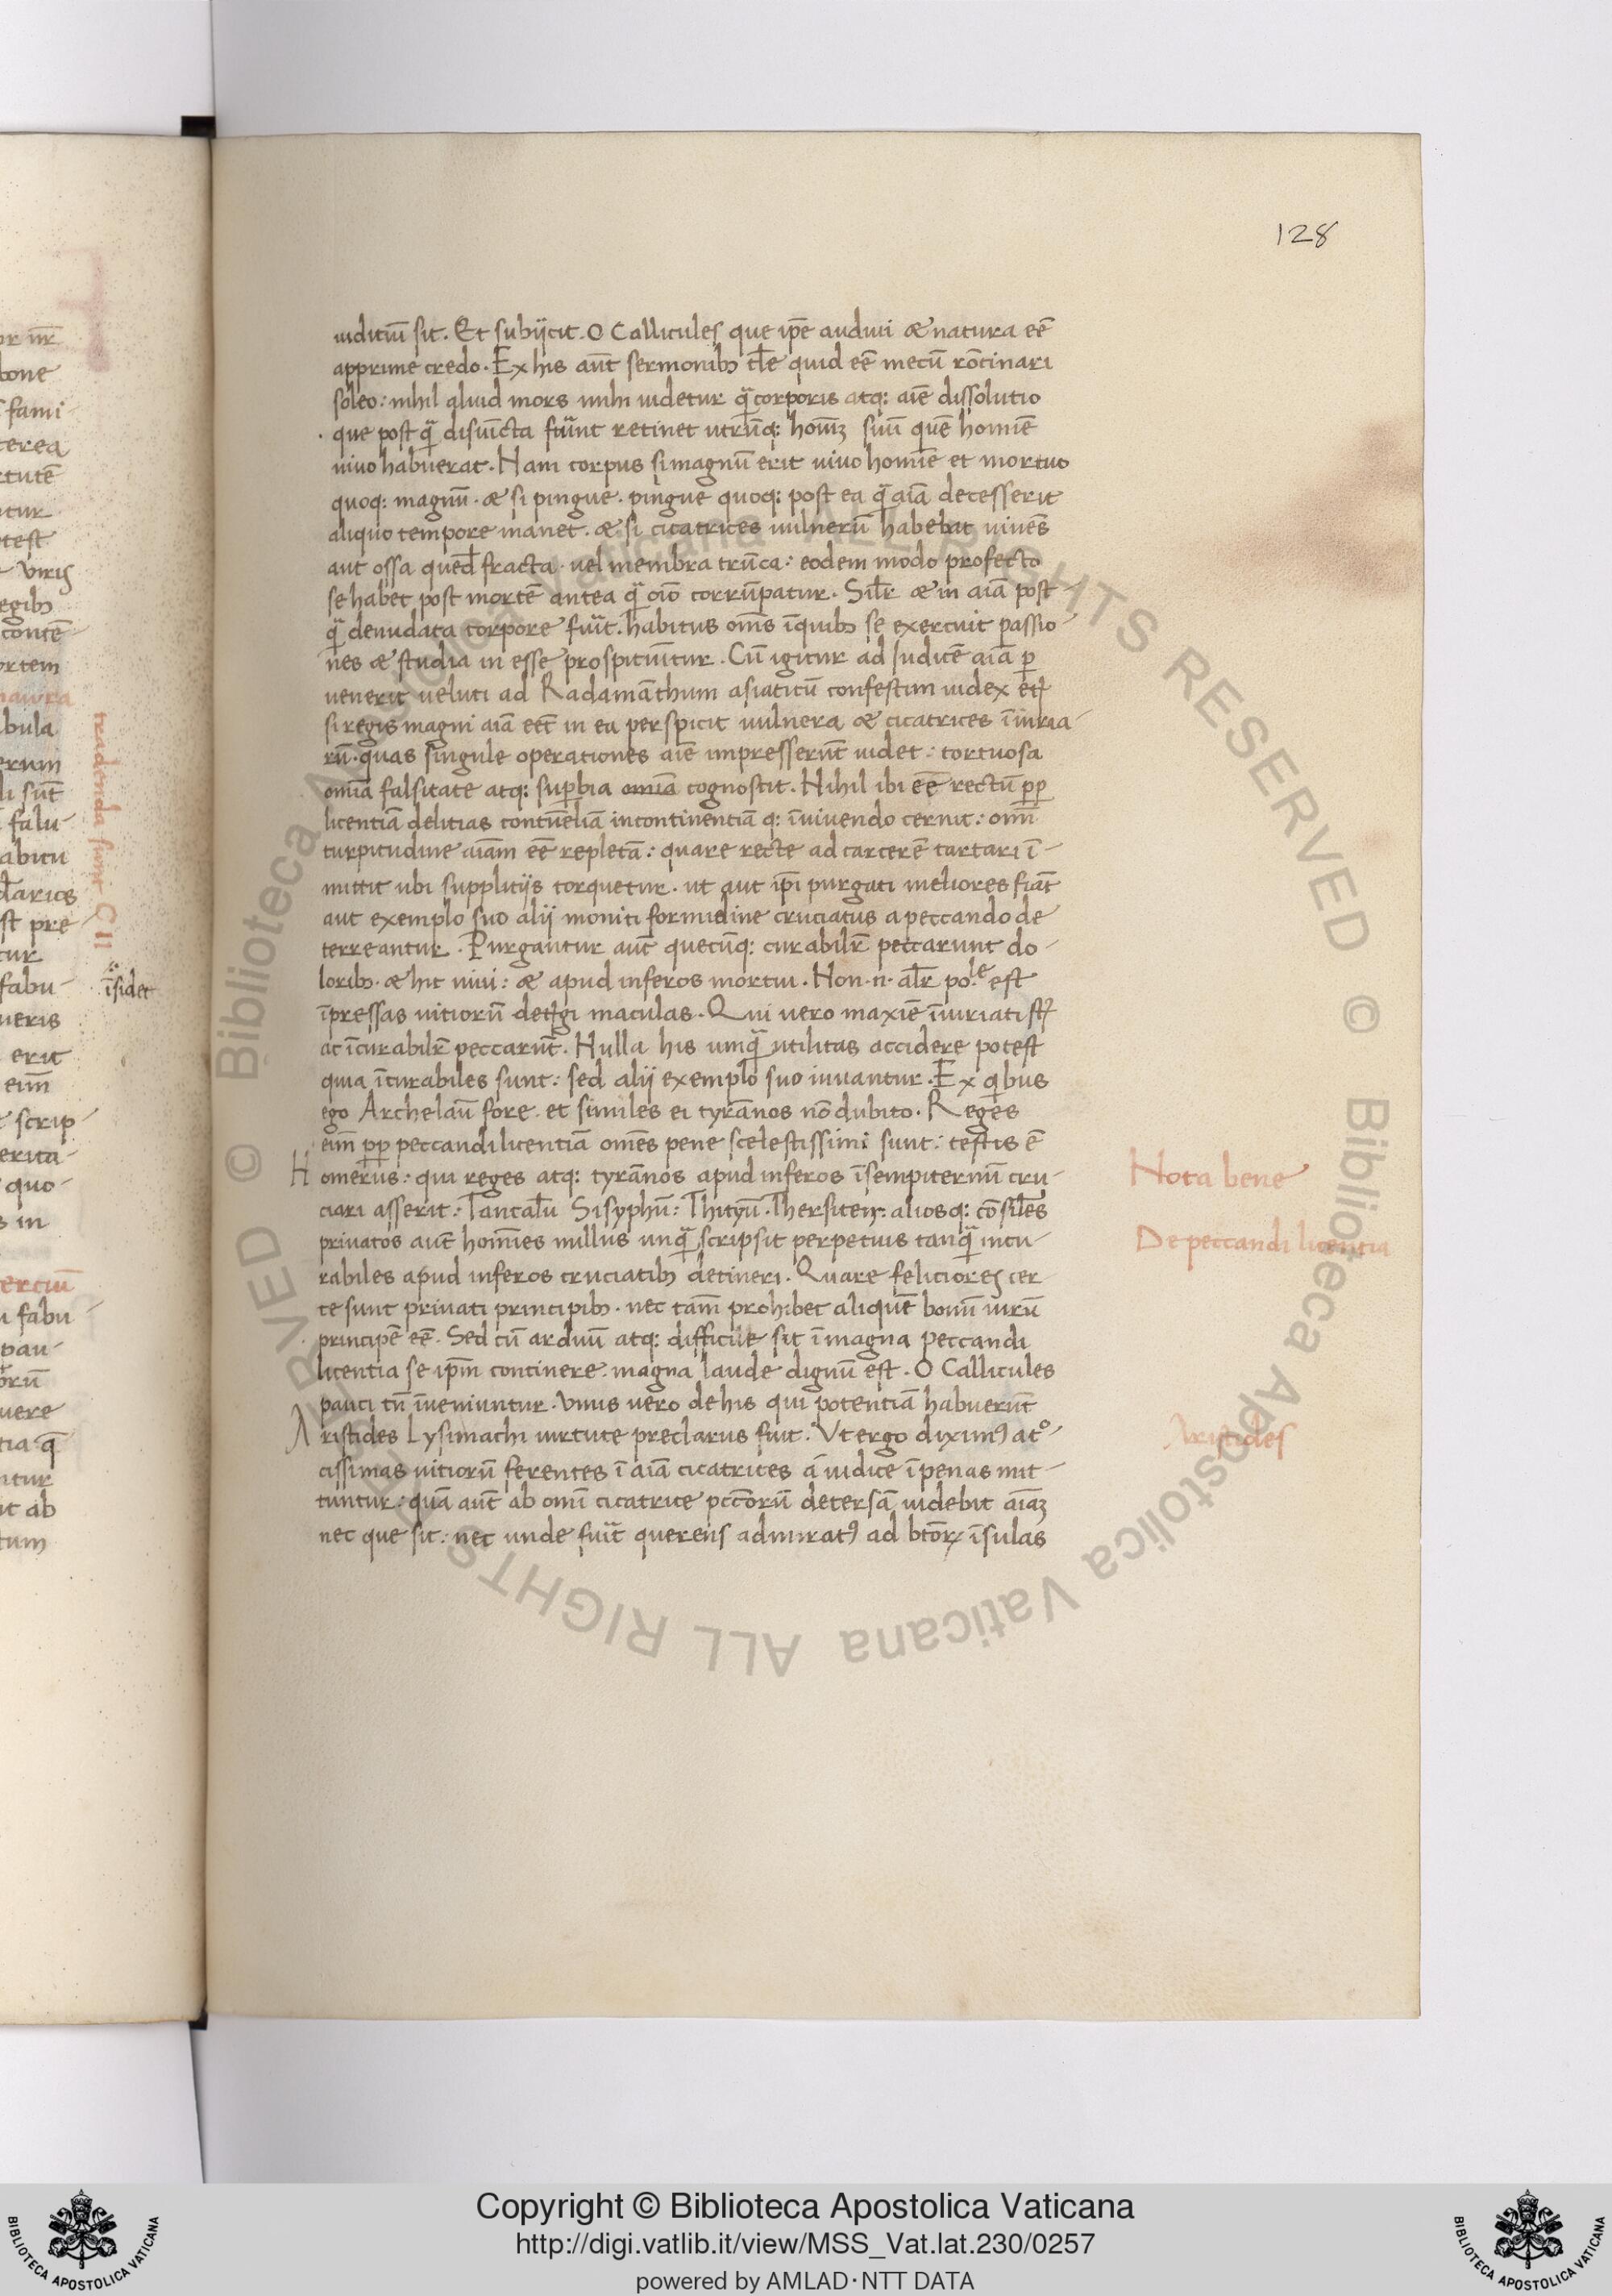 128
iuditiũ sit. Et subijcit. O Callicules que ip̃e audiui & natura eẽ
apprime credo. Ex his aũt sermonibȝ tłe quid eẽ mecũ rõcinari
soleo: nihil aliud mors mihi uidetur q̃ corporis atq: aiẽ dissolutio
que post q̃ disiũcta fũint retinet utrũq: horũȝ suũ quẽ homiẽ
uiuo habuerat. Nam corpus si magnũ erit uiuo homiẽ et mortuo
quoq: magnũ. & si pingue. pingue quoq: post ea q̃ aiã decesserit
aliquo tempore manet. & si cicatrices uulnerũ habebat uiuẽs
aut ossa quedã fracta. uel membra trũca: eodem modo profecto
se habet post mortẽ antea q̃ oĩo corrũpatur. Silr̃ & in aiã post
q̃ denudata corpore fũit. habitus om̃s ĩquibȝ se exercuit passio-
nes & studia in esse prospiciũtur. Cũ igitur ad Judicẽ aiã p̱
uenerit ueluti ad Radamãthum asiaticũ confestim iudex
si regis magni aiã eẽt in ea perspicit uulnera & cicatrices ĩiuria-
rũ. quas singule operationes aiẽ impresserũt uidet: tortuosa
omĩa falsitate atq: sup̱bia omĩa cognoscit. Nihil ibi eẽ rectũ p̱p̱
licentiã delitias contũeliã incontinentiã q: ĩuiuendo cernit: om̃i
turpitudine aiãm eẽ repletã: quare recte ad carcerẽ tartari ĩ-
mittit ubi supplitijs torquetur. ut aut ip̃i purgati meliores fiãt
aut exemplo suo alij moniti formidine cruciatus a peccando de
terreantur. Purgantur aũt quecũq: curabilr̃ peccarunt do-
loribȝ. & hic uiui: & apud inferos mortui. Non .n. alr̃ po.le est
ĩpressas uitiorũ detergi maculas. Qui uero maxiẽ ĩiuriati st̃
ac ĩcurabilr̃ peccarũt. Nulla his umq̃ utilitas accidere potest
quia ĩcurabiles sunt: sed alij exemplo suo iuuantur. Ex qibus
ego Archelaũ fore. et similes ei tyrãnos nõ dubito. Reges
eim̃ p̱p̱ peccandi licentiã om̃es pene scelestissimi sunt: testis ẽ
Homerus: qui reges atq: tyrãnos apud inferos ĩsempiternũ cru-
ciari asserit: Tantalũ Sisyphũ: Thityũ. Thersitem: aliosq: cõsiles
priuatos aũt homĩes nullus unq̃ scripsit perpetuis tanq̃ incu-
rabiles apud inferos cruciatibȝ detineri. Quare feliciores cer
te sunt priuati principibȝ. nec tam̃ prohibet aliquẽ bonũ uirũ
principẽ eẽ. Sed cũ arduũ atq: difficile sit ĩ magna peccandi
licentia se ip̃m continere. magna laude dignũ est. O Callicules
pauci tñ ĩueniuntur. Vnus uero de his qui potentiã habuerũt
Aristides Lysimachi uirtute preclarus fuit. Vt ergo diximꝰ atº-
cissimas uitiorũ ferentes ĩ aiã cicatrices a iudice ĩ penas mit-
tuntur: quã aũt ab omĩ cicatrice pccõrũ detersã uidebit aiãȝ
nec que sit: nec unde fũit querens admiratꝰ ad btõrꝝ ĩsulas
Nota bene
De peccandi licentia
Aristides
tradenda sunt CII
ĩsidet
Copyright © Biblioteca Apostolica Vaticana
http://digi.vatlib.it/view/MSS_Vat.lat.230/0257
powered by AMLAD·NTT DATA